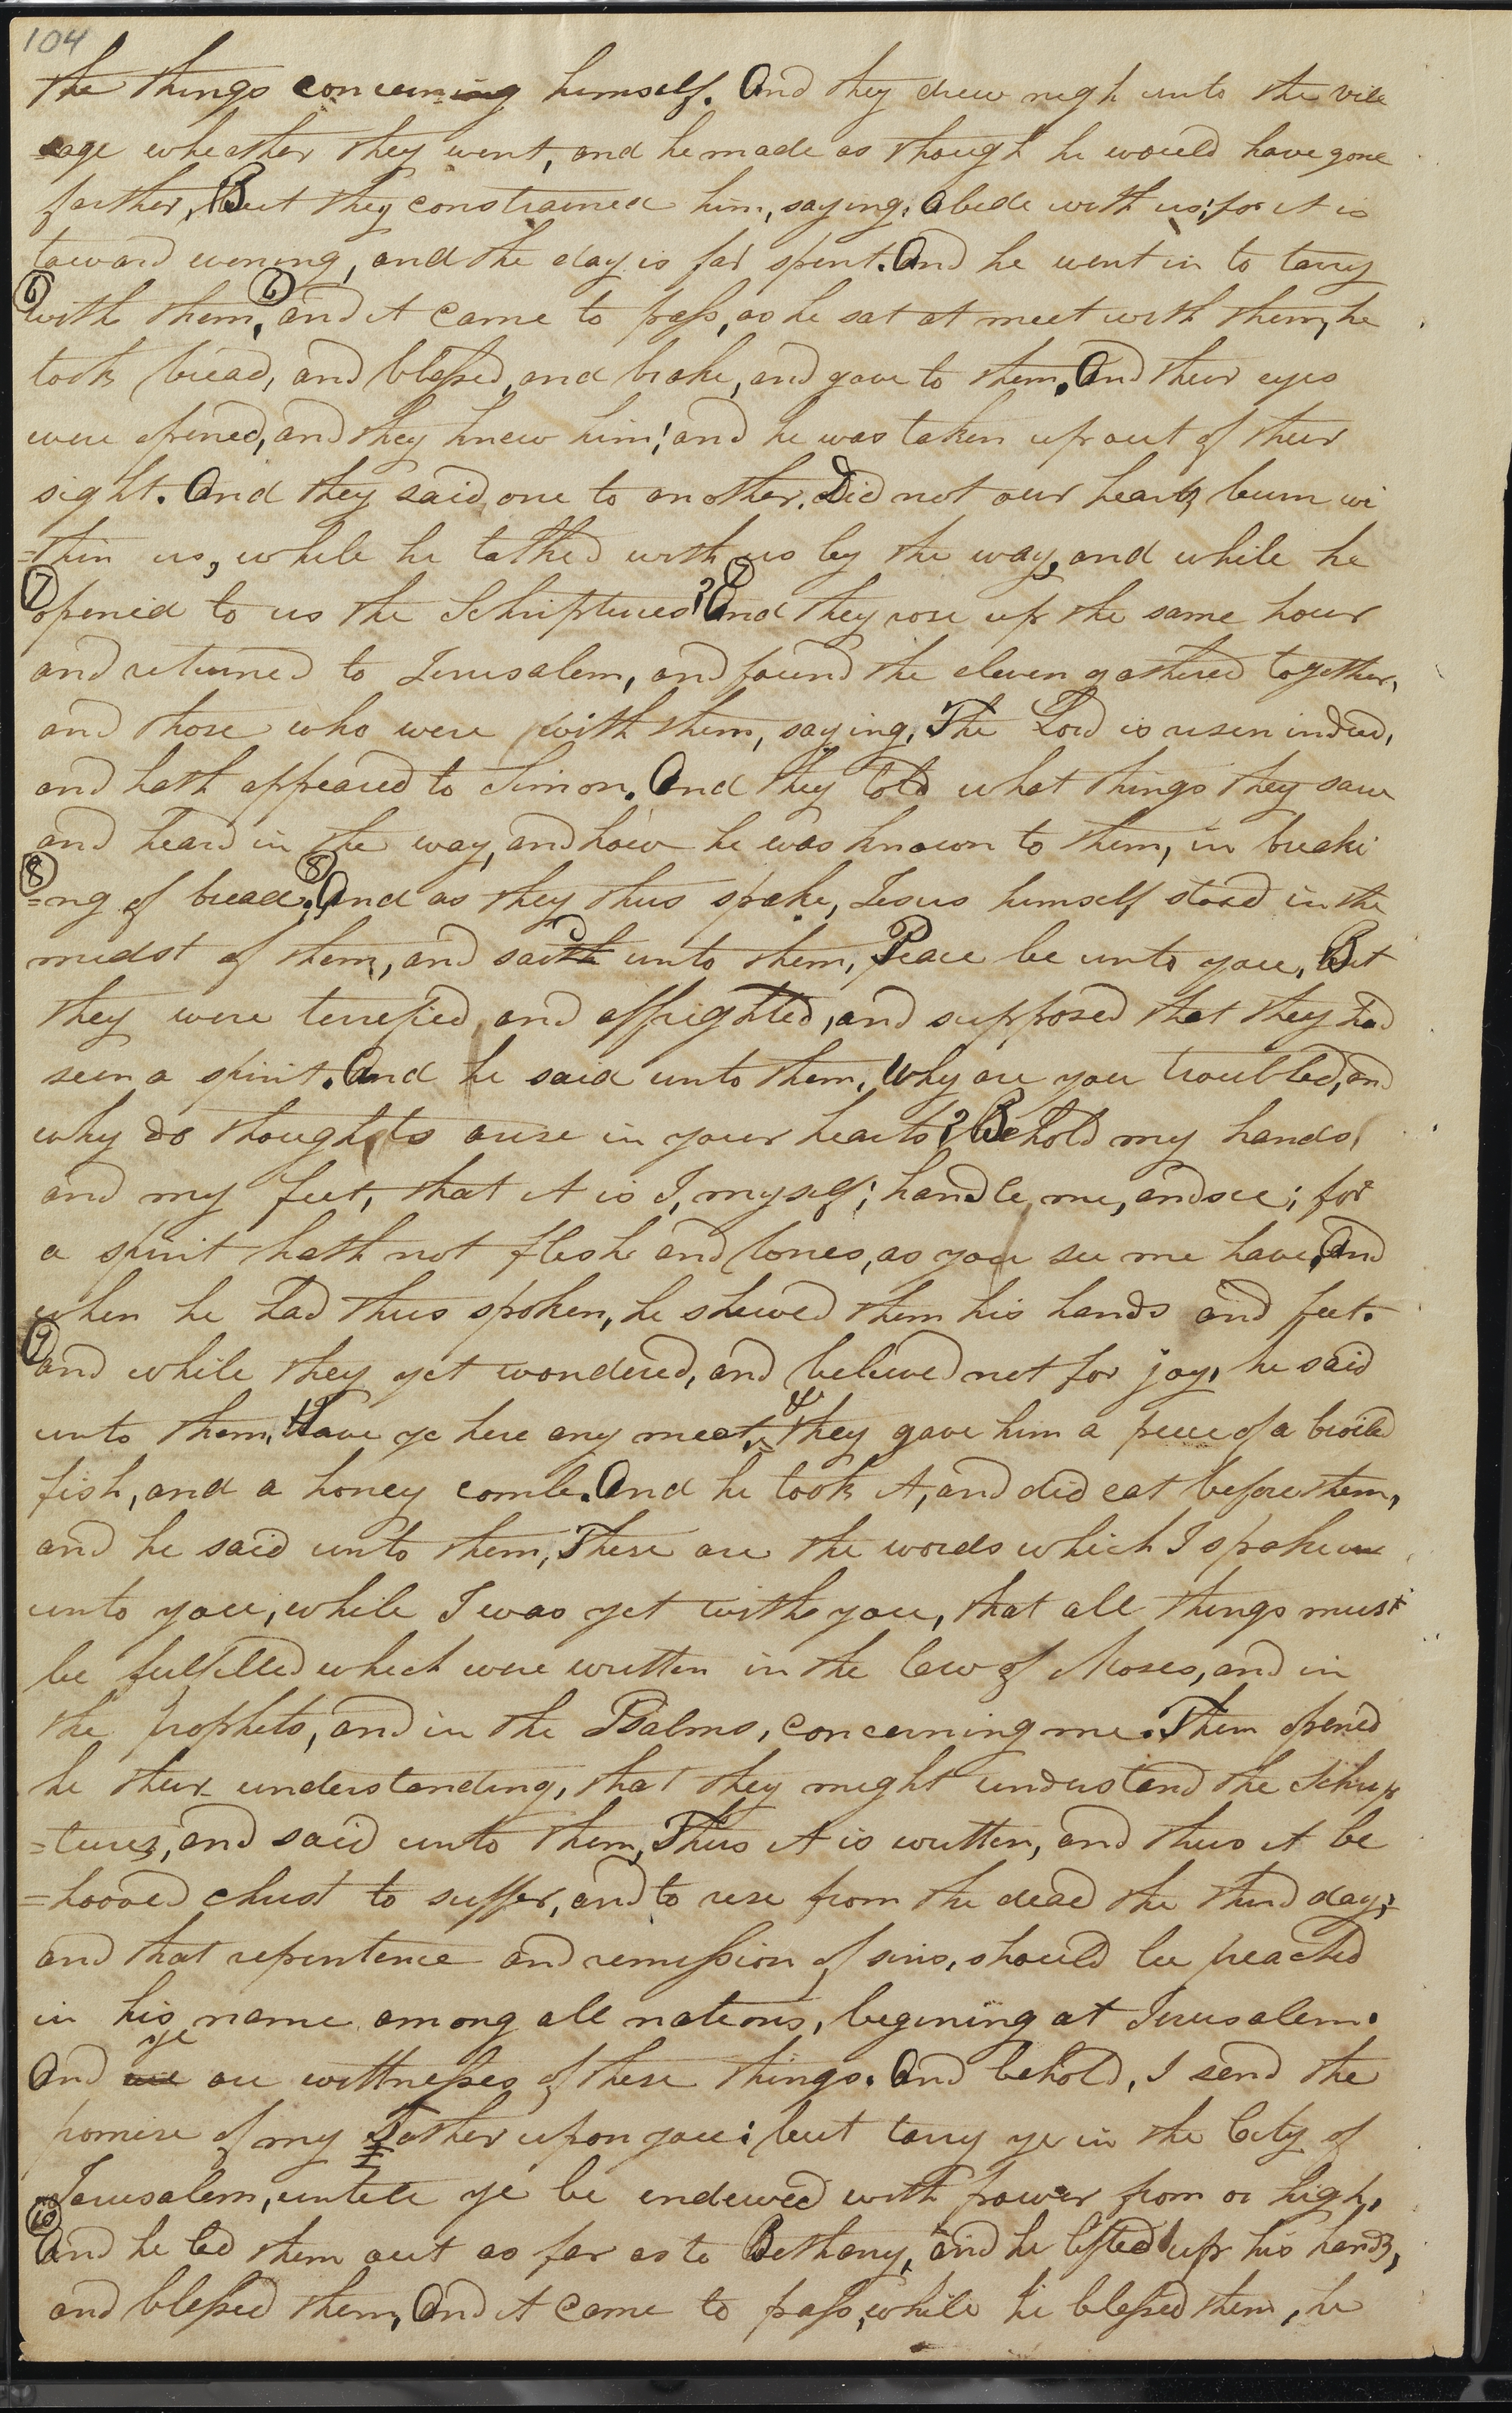 104
the things concerning himself. And they drew nigh unto the vill
=age wheather they went, and he made as though he would have gone
farther, But they constrained him, saying, Abide with us; for it is
toward evening, and the day is far spent. And he went in to tarry
6 with them, 6 and it came to pass, as he sat at meet with them, he
took bread, and blessed, and brake, and gave to them. And their eyes
were opened, and they knew him; and he was taken up out of their
sight. And they said, one to another, Did not our hearts burn wi
=thin us, while he talked with us by the way, and while he
7 opened to us the Schriptures? 7 And they rose up the same hour
and returned to Jerusalem, and found the eleven gathered together,
and those who were with them, saying, The Lord is risen indeed,
and hath appeared to Simon. And they told what things they saw
and heard in the way, and how he was known to them, in breaki
8 =ng of bread. 8 And as they thus spake, Jesus himself stood in the
midst of them, and saith unto them, Peace be unto you, But
they were terrefied and affrightted, and supposed that they had
seen a spirit. And he said unto them, Why are you troubled, and
why do thoughts arise in your hearts? Behold my hands,
and my feet, that it is I, myself; handle me, and see; for
a spirit hath not flesh and bones, as you see me have, And
when he had thus spoken, he shewed them his hands and feet.
9 and while they yet wondered, and believed not for joy, he said
unto them, Have ye here any meet, & they gave him a piece of a broiled
fish, and a honey comb. And he took it, and did eat before them,
and he said unto them, These are the words which I spake un
unto you, while I was yet with you, that all things must
be fulfilled which were written in the law of Moses, and in
the prophets, and in the Psalms, concerning me. Then opened
he their understanding, that they might understand the Schrip
=tures, and said unto them, Thus it is written, and thus it be
=hooved christ to suffer, and to rise from the dead the third day;
and that repentence and remission of sins, should be preached
in his name among all nations, begining at Jerusalem.
ye
And we are wittnesses of these things. And behold, I send the
promise of my Father upon you; but tarry ye in the City of
Jerusalem, untill ye be endewed with power from on high,
10 And he led them out as far as to Bethany, and he lifted up his hands,
and blessed them, And it came to pass, while he blessed them, he